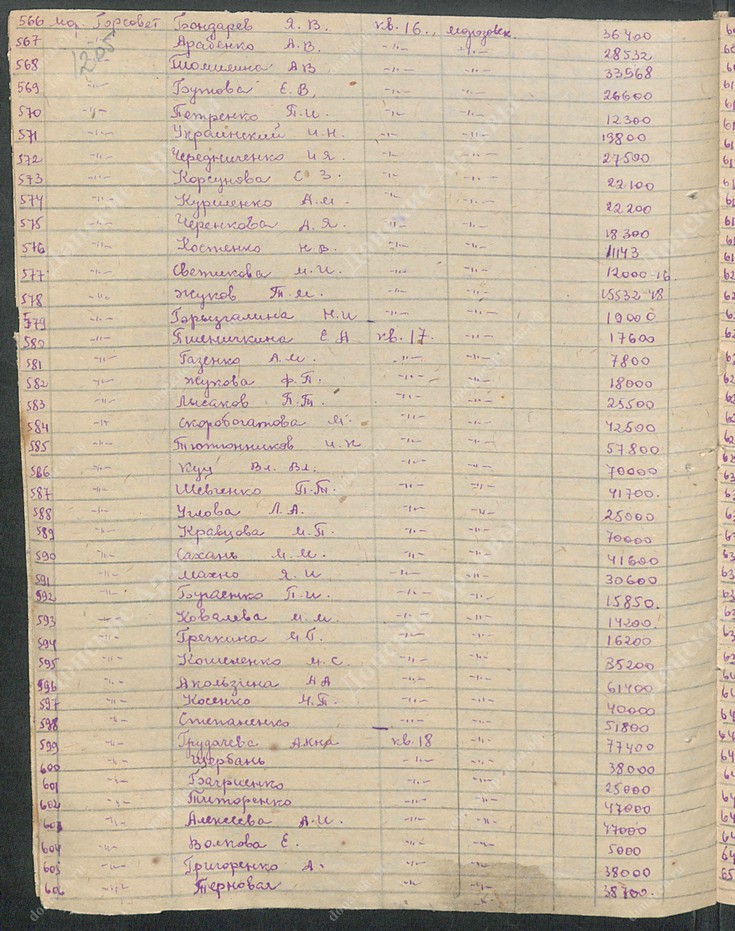 566 мор. Горсовет Бондарев Я. В. кв. 16., морозовск. 36400
567 Арабенко А. В. -"- -"- 28532
568 Томилина А В -"- -"- 33568
569 -"- Бутова Е. В. -"- -"- 26600
570 -"- Петренко П. И. -"- -"- 12300
571 -"- Украинский И. Н. -"- -"- 19800
572 -"- Чередниченко И Я. -"- -"- 27500
573 -"- Корсунова С З. -"- -"- 22100
574 -"- Куриленко А. М. -"- -"- 22200
575 -"- Черенкова А. Я. -"- -"- 18300
576 -"- Костенко Н В. -"- -"- 1143
577 -"- Светикова М. И. -"- -"- 12000-16
578 -"- Жуков Т. М. -"- -"- 15532-48
579 -"- Н. И -"- -"- 19000
580 -"- Пшеничкина Е А кв. 17. -"- 17600
581 -"- Газенко А. М. -"- -"- 7800
582 -"- Жукова Ф. П. -"- -"- 18000
583 -"- Лысаков П. Т. -"- -"- 25500
584 -"- Скоробогатова М. -"- -"- 42500
585 -"- Тютюнников И. К -"- -"- 57800
586 -"- Куц Вл. Вл. -"- -"- 70000
587 -"- Шевченко П. Т. -"- -"- 41700.
588 -"- Углова Л. А. -"- -"- 25000
589 -"- Кравцова М. П. -"- -"- 70000
590 -"- Сахань М. М. -"- -"- 41600
591 -"- Махно Я. И -"- -"- 30600
592 -"- Бураенко П. И. -"- -"- 15850.
593 -"- Ковалева М. М. -"- -"- 14200.
594 -"- Гречкина М П. -"- -"- 16200
595 -"- Кошеленко М. С. -"- -"- 35200
596 -"- Акользина А А -"- -"- 61400
597 -"- Косенко М. П. -"- -"- 40000
598 -"- Степаненко -"- -"- 51800
599 -"- Грудачева Анна кв. 18 -"- 77400
600 -"- Щербань -"- -"- 38000
601 -"- Багриенко -"- -"- 25000
602 -"- Титоренко -"- -"- 47000
603 -"- Алексеева А. И. -"- -"- 47000
604 -"- Волкова Е. -"- -"- 5000
605 -"- Григоренко А. -"- -"- 38000
606 -"- Терновая -"- -"- 38700.